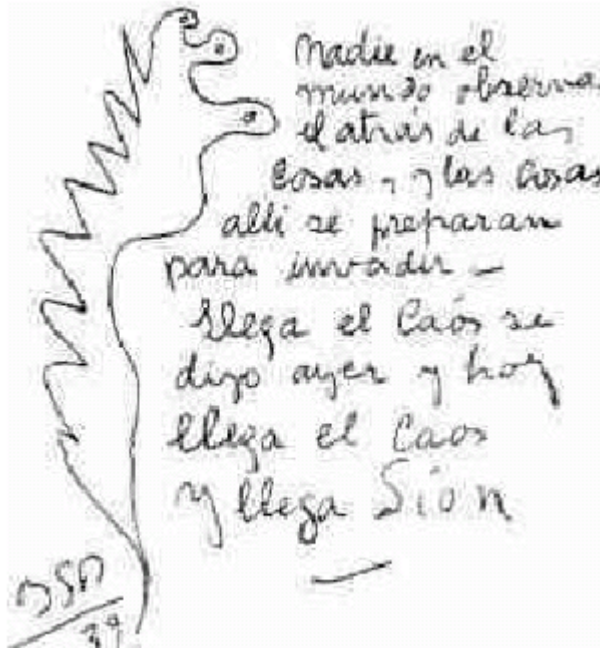 Nadie en el
mundo observa
el atrás de las
cosas, y las cosas
alli se preparan
para invadir -
llega el Caós se
dijo ayer y hoy
llega el Caos
y llega Sion
BSP
39